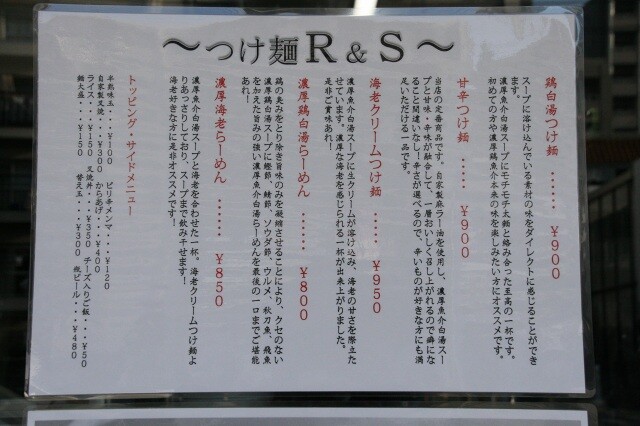 ～つけ麺R＆S～
鶏白湯つけ麺 ····· ¥900
スープに溶け込んでいる素材の味をダイレクトに感じることができ
ます。
濃厚魚介白湯スープにモチモチ太麺と絡み合った至高の一杯です。
初めての方や濃厚鶏魚介本来の味を楽しみたい方にオススメです。
甘辛つけ麺 ····· ¥900
当店の定番商品です。自家製麻ラー油を使用し、濃厚魚介白湯スー
プと甘味・辛味が融合して、一層おいしく召し上がれるので癖にな
ること間違いなし！辛さが選べるので、辛いものが好きな方にも満
足いただける一品です。
海老クリームつけ麺 ····· ¥950
濃厚魚介白湯スープに生クリームが溶け込み、海老の甘さを際立た
せています。濃厚な海老を感じられる一杯が出来上がりました。
是非ご賞味あれ！
濃厚鶏白湯らーめん ····· ¥800
鶏の臭みをとり除き旨味のみを凝縮させることにより、クセのない
濃厚鶏白湯スープに鰹節、鯖節、ソウダ節、ウルメ、秋刀魚、飛魚
を加えた旨みの強い濃厚魚介白湯らーめんを最後の一口までご堪能
あれ！
濃厚海老らーめん ····· ¥850
濃厚魚介白湯スープと海老を合わせた一杯。海老クリームつけ麺よ
りあっさりしており、スープまで飲み干せます！
海老好きな方に是非オススメです！
トッピング・サイドメニュー
半熟味玉···¥100 ピリ辛メンマ···¥120
自家製叉焼···¥300 からあげ···¥400
ライス···¥150 叉焼丼···¥350 チーズ入りご飯···¥50
麺大盛···¥150 替え玉···¥300 瓶ビール···¥480